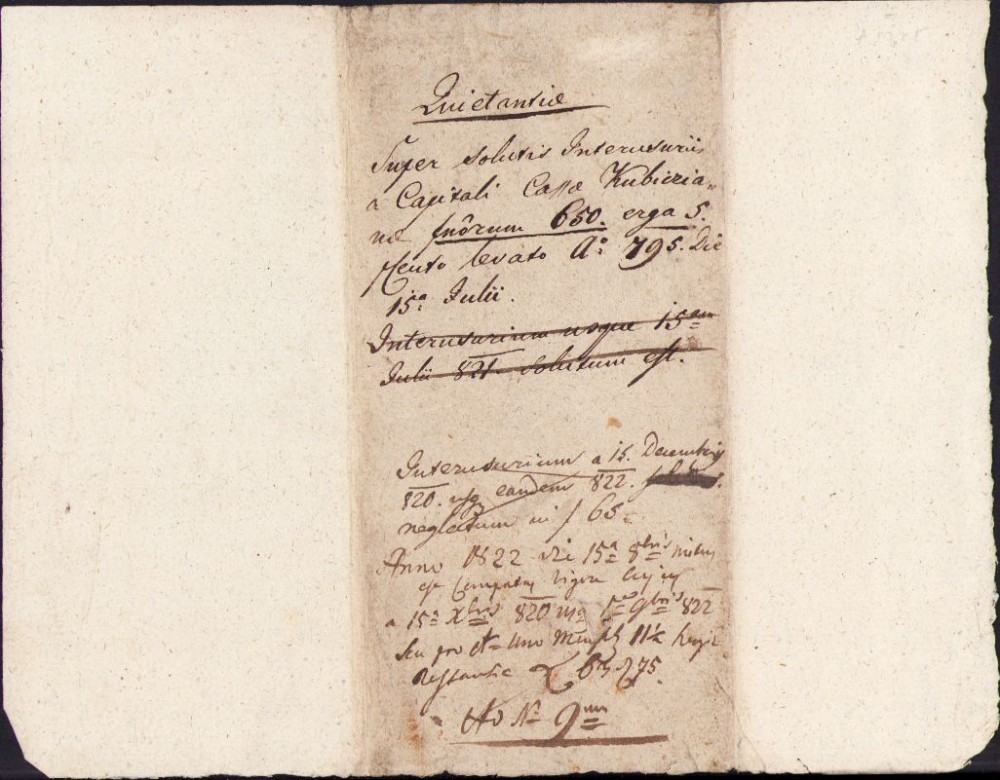 Quietantiæ
Super solutis Interusuriis
a Capitali Cassæ Kubiczia=
næ fnôrum 650. erga 5.
pCento levato Aº 795. Die
15ª Julii.
Interusurium usque 15am
Julii 821. Solutum est.
Interusurium a 15. Decembris
820. usq eandem 822.
neglectum in f 65=
Anno 1822 die 15ª 8bris initus
est Computus vigore cujus
a 15ª Xbris 820 usq 9bris 822
seu pro et uno 11½
Restantiæ 75.
Ao No 9um